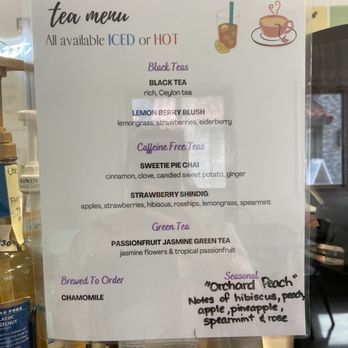 tea menu
All available ICED or HOT
Black Teas
BLACK TEA
rich, Ceylon tea
LEMON BERRY BLUSH
lemongrass, strawberries, elderberry
Caffeine Free Teas
SWEETIE PIE CHAI
cinnamon, clove, candied sweet potato, ginger
STRAWBERRY SHINDIG
apples, strawberries, hibiscus, rosehips, lemongrass, spearmint
Green Tea
PASSIONFRUIT JASMINE GREEN TEA
jasmine flowers & tropical passionfruit
Brewed To Order
CHAMOMILE
Seasonal
"Orchard Peach"
Notes of hibiscus, peach,
apple, pineapple,
spearmint & rose
CLASSIC